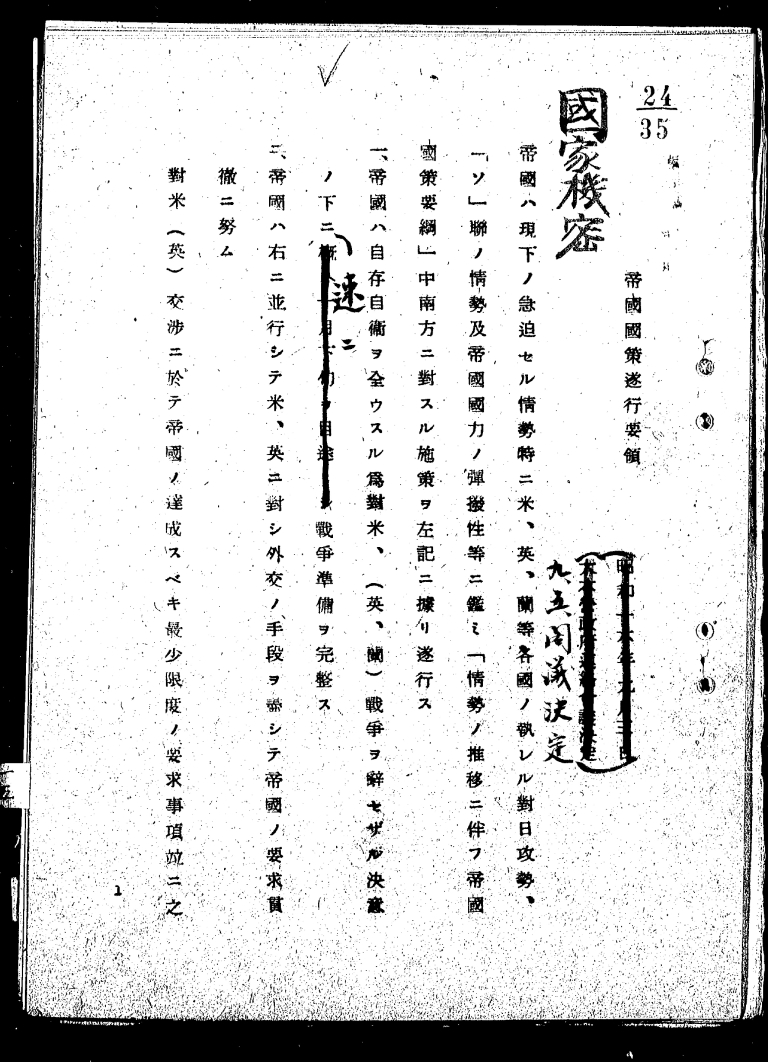 24
35
國家機密
帝國國策遂行要領
昭和十六年九月三日
大本營政府連絡會議決定
九、五閣議決定
帝國ハ現下ノ急迫セル情勢特ニ米、英、蘭等各國ノ執レル對日攻勢、
「ソ」聯ノ情勢及帝國國力ノ彈撥性等ニ鑑ミ「情勢ノ推移ニ伴フ帝國
國策要綱」中南方ニ對スル施策ヲ左記ニ據リ遂行ス
一、帝國ハ自存自衞ヲ全ウスル爲對米、(英、蘭)戰爭ヲ辭セザル決意
ノ下ニ概ネ十月下旬ヲ目途トシ戰爭準備ヲ完整ス
速ニ
二、帝國ハ右ニ並行シテ米、英ニ對シ外交ノ手段ヲ盡シテ帝國ノ要求貫
徹ニ努ム
對米(英)交渉ニ於テ帝國ノ達成スベキ最少限度ノ要求事項竝ニ之
1